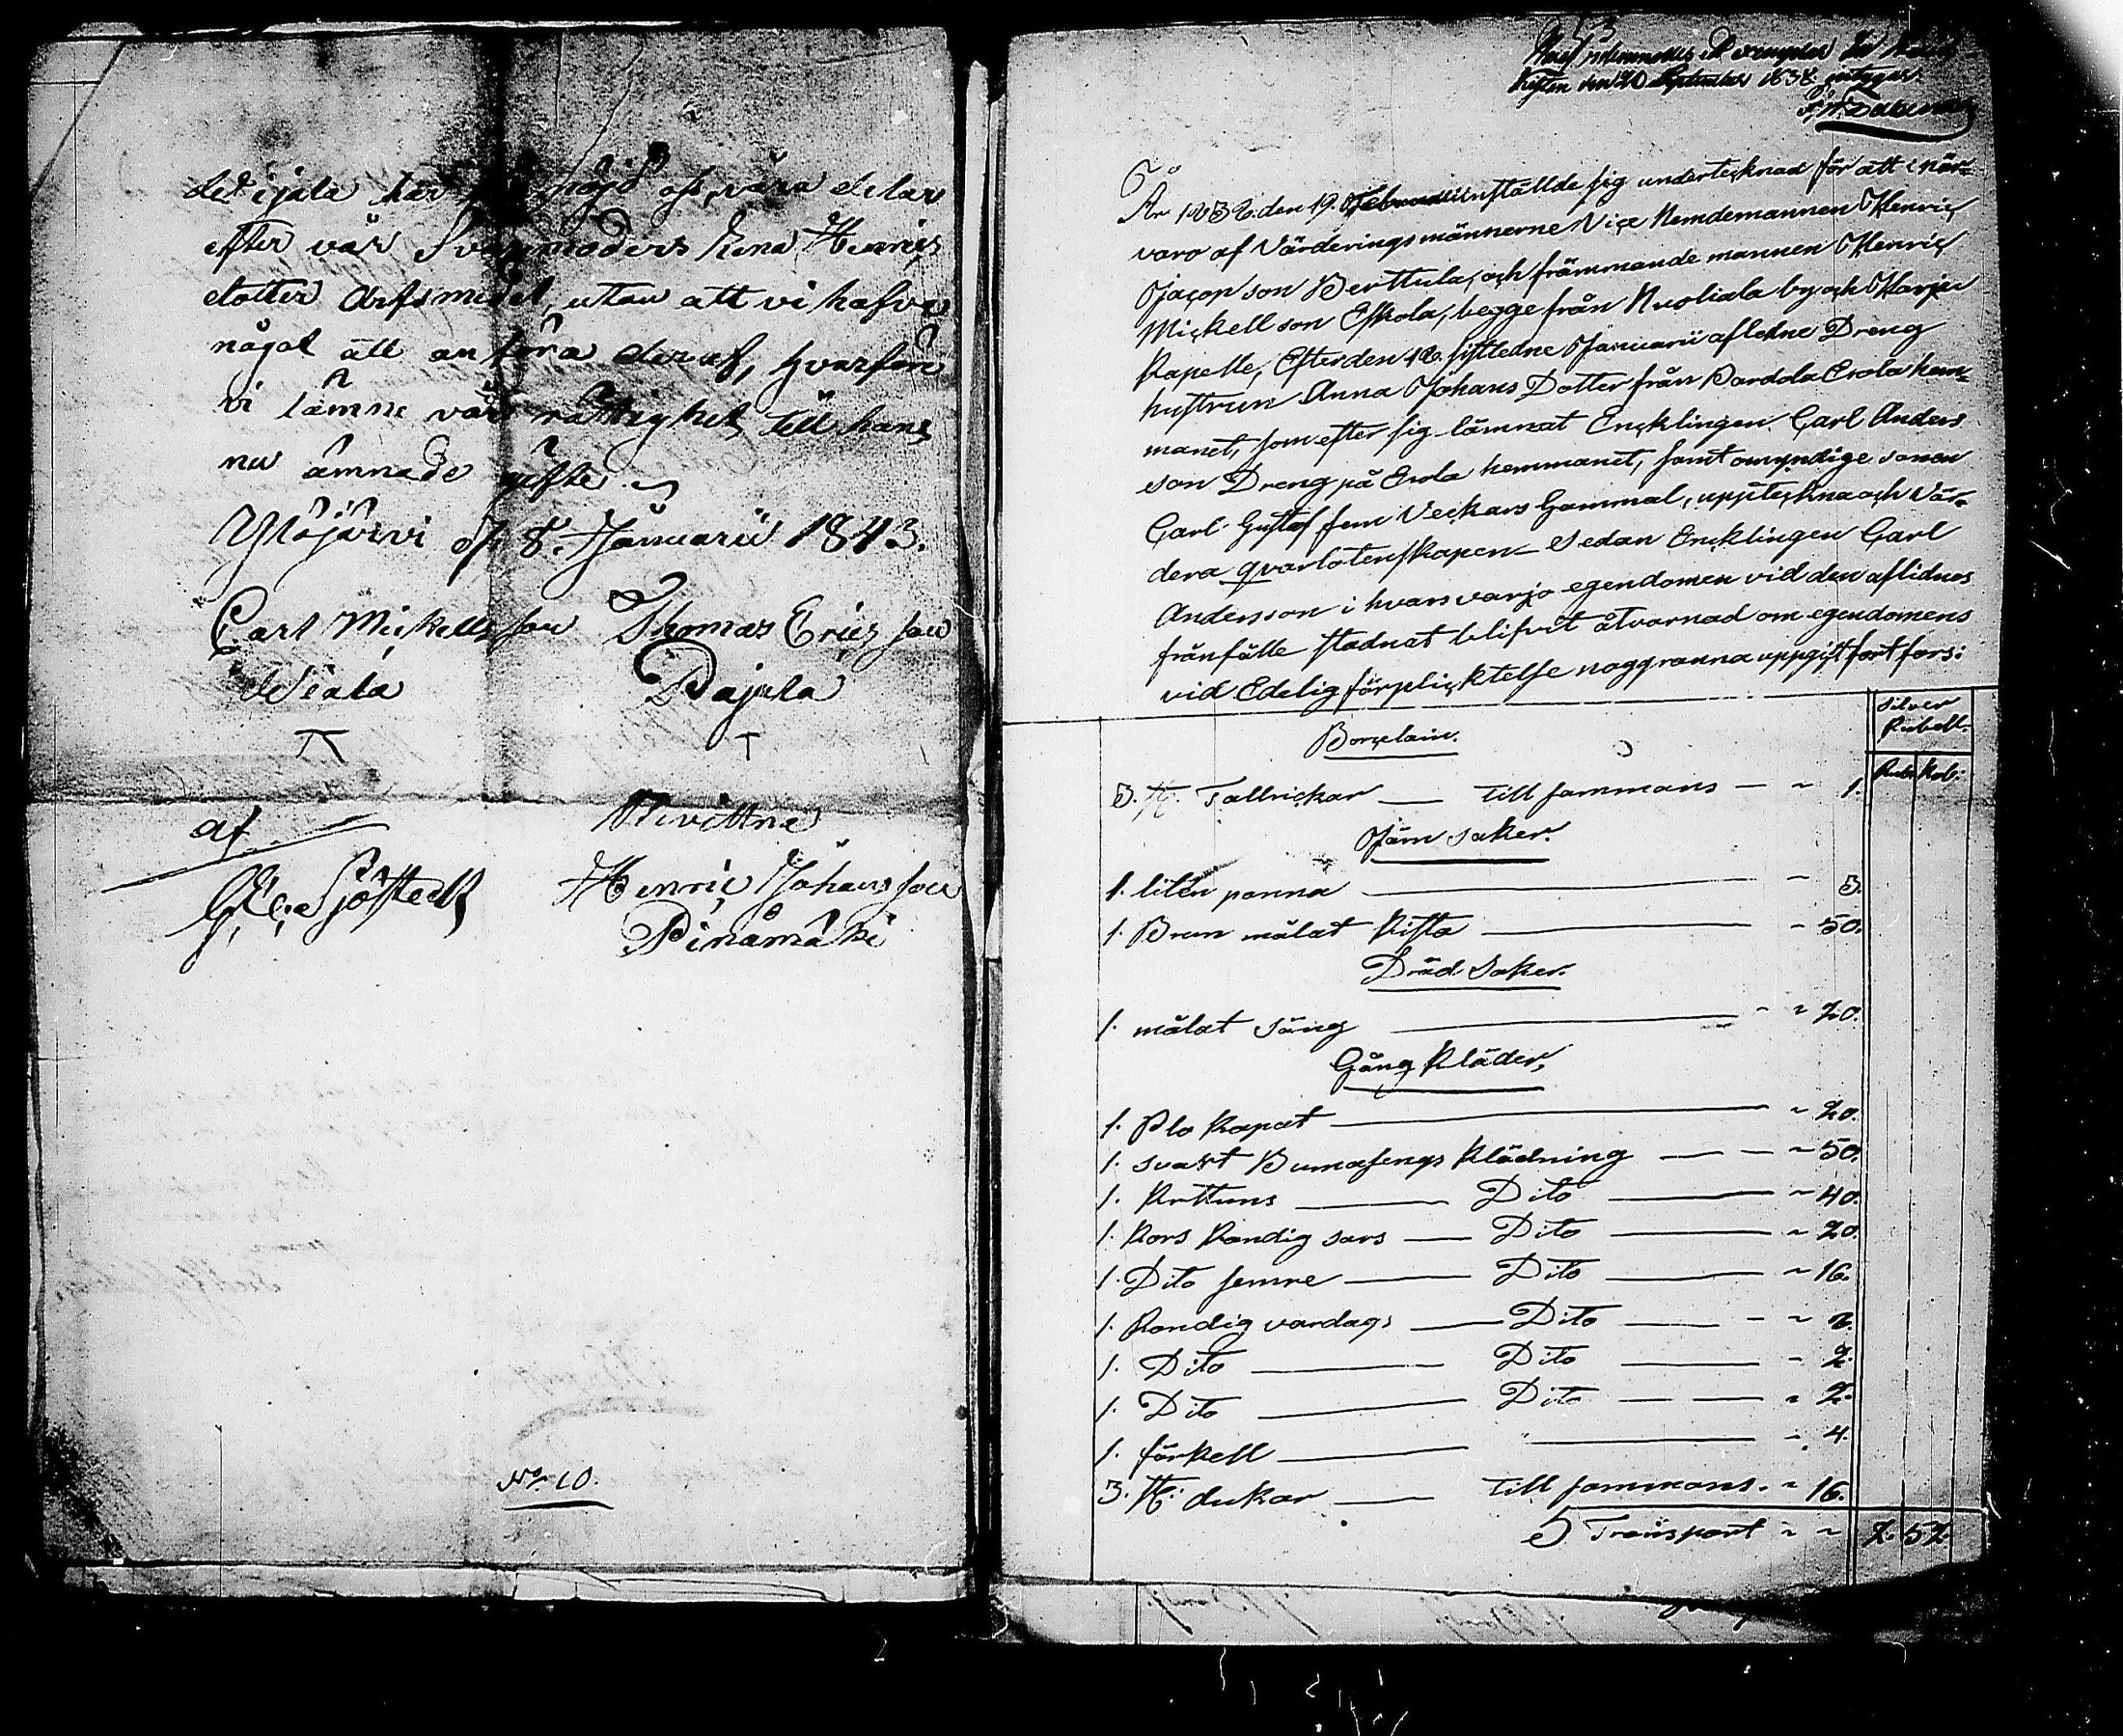 det ijala har nöjd oss, våra delar
efter vår Svärmoders Lena Henrics
dotter Arfsmedel, utan att vi hafva
någol att anföra deruf, hvarfore
vi lämne vår rättighet till hans
nu ämnade gifte.
Ylöjärvi d. 8. Januarii 1843.
Carl Mickells son Thomas Erics son
Wiala Pajula
af Bevittna
G. C. Sjöstedt Henric Johans son
Pinämäki
No. 10.
den 20 September 1838, intygar.
År 1838. den 19. Februarii instállde sig undertecknad för att i när-
varo af Värderingsmännerne Vice Nemdemannen Henric
Jacop son Berttula, och främmande mannen Henric
Mickell son Eskola, begge från Nuoliala by och Harju
Kapelle, Efter den 16. sistledne Januarii aflidne Dreng
hustrun Anna Johans Dotter från Pardola Erola hem-
manet, som efter sig lämnat Encklingen Carl Anders
son Dreng på Erola hemmanet, samt omyndige sonen
Carl Gustaf fem Veckars Gammal, uppteckna och Vär-
dera qvarlotenskapen — Sedan Encklingen Carl
Andersson i hvars varjo egendomen vid den aflidnes
frånfälle stadnat blifvit åtvarnad om egendomens
vid Edelig förplicktelse noggranna uppgift fort fors:
Silver
Rubell.
Borcelain.
Rub. Kob:
3. st. Tallrickar — till sammans — ~ 1.
Järn saker.
1. liten panna — ~ 3.
1. Brun målat Kista — ~ 50.
Träd Saker.
1. målat säng — ~ 20.
Gång Kläder,
1. Blo Kapat — ~ 20.
1. svart Bumasengs Klädning — ~ 50.
1. Kattuns — Dito — ~ 40.
1. Kors Randig sars — Dito — ~ 20.
1. Dito semre — Dito — ~ 16.
1. Randig vardags — Dito — ~ 8.
1. Dito — Dito — ~ 2.
1. Dito — Dito — ~ 2.
1. förkell — ~ 4.
3. st: dukar — till sammans. ~ 16.
Transport ~ ~ 2. 52.